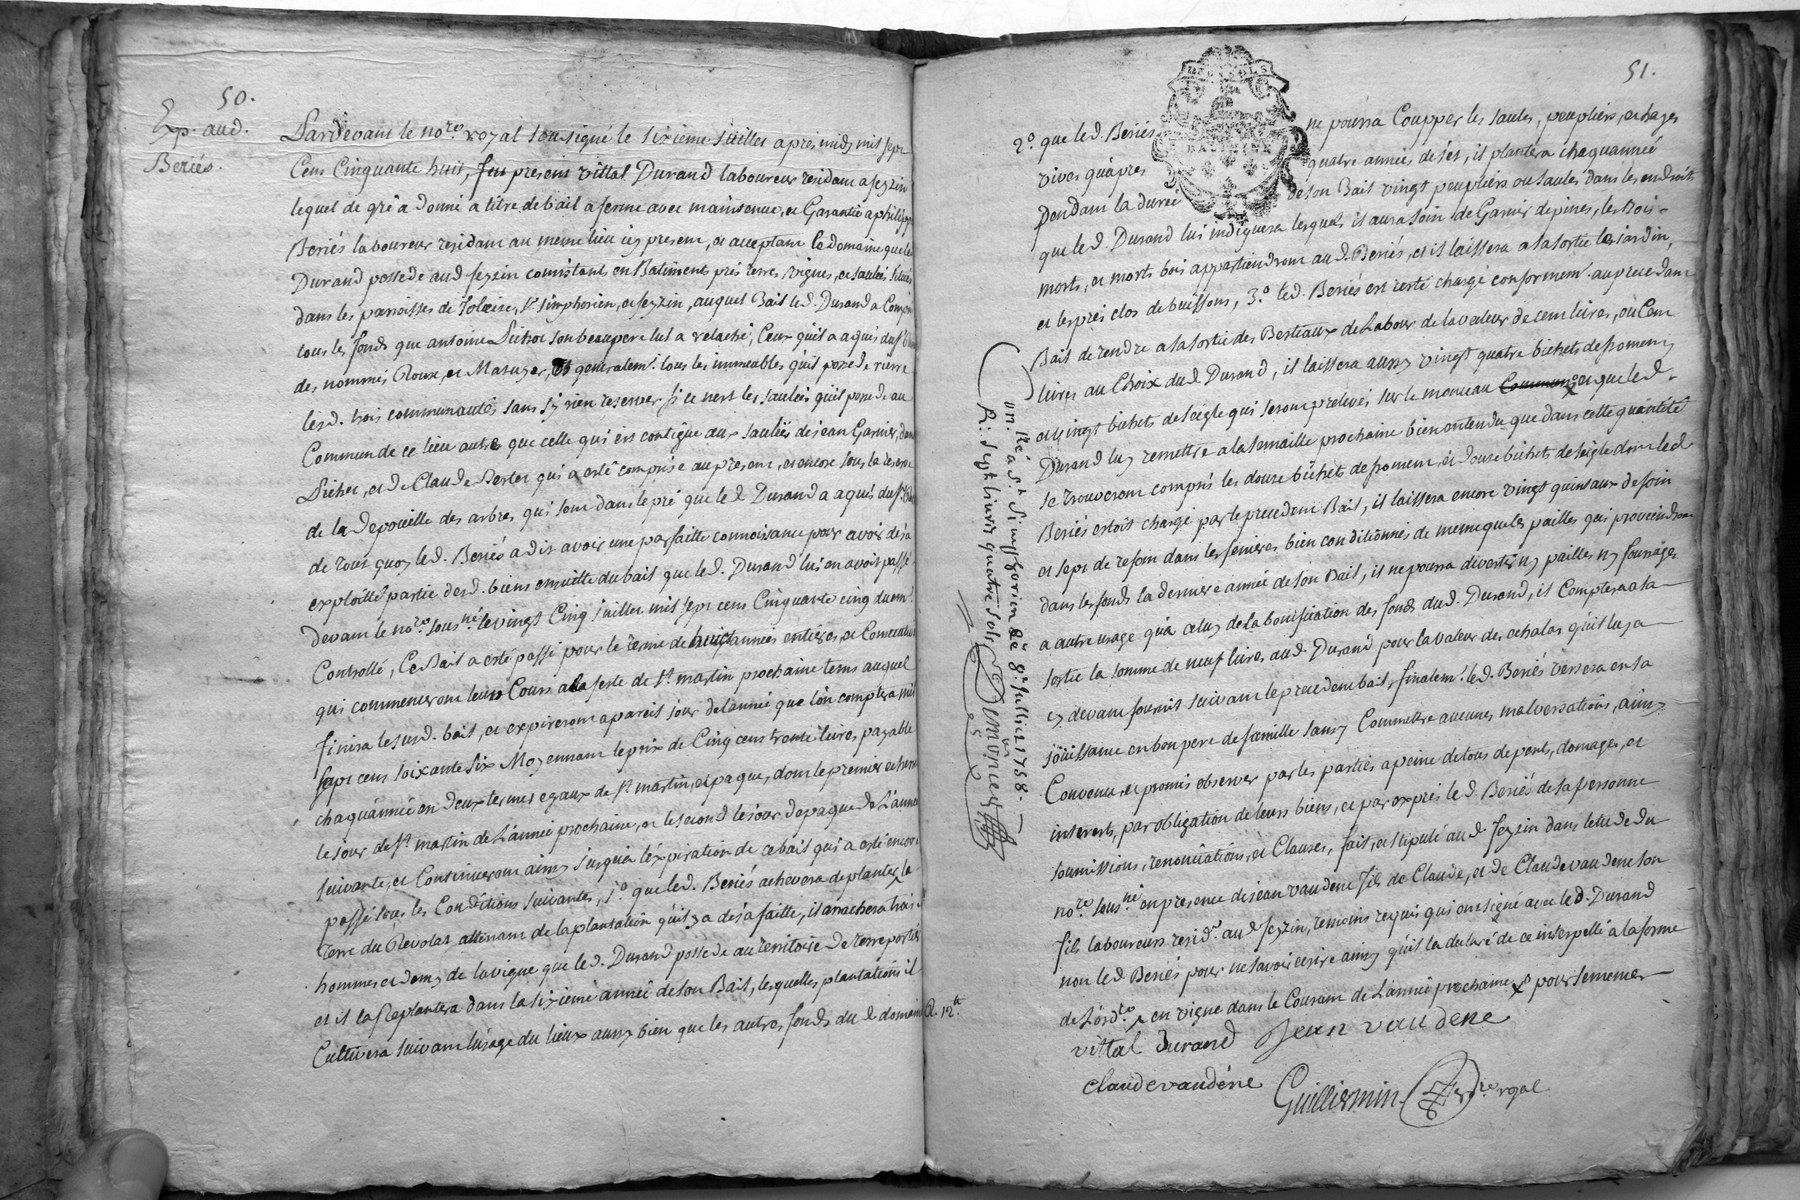 50.
Exp. aud.
Beriés.
Pardevant le no.re royal soussigné le sixieme juillet apres midy mil sept
Cens Cinquante huit, fut present vittal Durand laboureur residant a feyzin
lequel de gré a donné a titre de bail a ferme avec maintenue, et Garantie a philippe
Beriés laboureur residant au meme lieu icy present, et acceptant le domaine que led
Durand possede aud feyzin consistant en Batiments prés terres, vignes, et saulées situés
dans les parroisses de Solaise, St simphorien, et feyzin, auquel Bail led. Durand a Compris
tous les fonds que antoine Pichot son beaupere lui a relaché, Ceux qu'il a aquis du Sr
des nommés Roux, et Mazuyer, et generalemt. tous les immeubles qu'il possede riere
lesd. trois communautés sans s'y rien reserver si ce n'est les saulées qu'il possede au
Commun de ce lieu autre que celle qui est contigue aux saulées de jean Garnier,
Pichot, et de Claude Berlet qui a esté comprise au present, et encore sous la reserve
de la depoüille des arbres qui sont dans le pré que le d Durand a aquis du Sr
de tout quoy led. Beriés a dit avoir une parfaitte connoissance pour avoir déja
exploitté partie desd. biens ensuitte du bail que led. Durand lui en avoit passé
devant le no.re sous.né le vingt Cinq juillet mil sept cens Cinquante cinq duemt.
Controllé, Ce Bail a esté passé pour le terme de huit années entieres, et Consecutives
qui commenceront leurs Cours a la feste de St. martin prochaine tems auquel
finira le susd. bail, et expireront a pareil jour de l'année que l'on comptera mil
sept cens soixante six Moyennant le prix de Cinq cens trente livres payable
chaqu'année en deux termes egaux de St martin, et paque, dont le premier echerra
le jour de St martin de L'année prochaine, et le second le jour de paque de L'année
suivante, et Continueront ainsy jusqu'a l'expiration de ce bail qui a esté encore
passé sous les Conditions suivantes, 1.o que led. Beriés achevera de planter la
Terre du Revolat attenant de la plantation qu'il y a deja faitte, il arrachera trois
hommes et demy de la vigne que led. Durand possede au territoire de
et il la Replantera dans la sixieme année de son Bail, lesquelles plantations il
Cultivera suivant l'usage du lieux aussy bien que les autres fonds du d domaine
R. 12.tt
51.
2.o que led. Beriés ne pourra Coupper les saules, peupliers, et hayes
vives qu'apres quatre années de fét, il plantera chaqu'année
pendant la durée de son Bail vingt peupliers ou saules dans les endroits
que led. Durand lui indiquera lesquels il aura soin de Garnir depines, les Bois
morts, et morts bois appartiendront aud. Beriés, et il laissera a la sortie le jardin,
et les prés clos de buissons, 3.o led. Beriés est resté chargé conformemt. au precedent
Bail de rendre a la sortie des Bestiaux de Labour de la valeur de cent livres, ou Cent
livres au Choix dud. Durand, il laissera aussy vingt quatre bichets de froment
et vingt bichets de seigle qui seront prelevés sur le monceau Commun et que led.
Durand luy remettre a la semaille prochaine bien entendu que dans cette quantité
se trouveront compris les douze bichets de froment, et douze bichets de seigle dont led
Beriés estoit chargé par le precedent Bail, il laissera encore vingt quintaux de foin
et sept de refoin dans les fenieres bien conditionnés de meme que les pailles qui proviendront
dans les fonds la derniere année de son Bail, il ne pourra divertir ny pailles ny fourrages
a autre usage qu'a celuy de la bonification des fonds dud. Durand, il Comptera a la
sortie la somme de neuf livres aud. Durand pour la valeur des echalas qu'il luy a
cy devant fournit suivant le precedent bail, finalemt. led. Beriés versera en sa
joüissance en bon pere de famille sans y Commettre aucunes malversations, ainsy
Convenu, et promis observer par les parties a peine de tous depens, domages, et
interests, par obligation de leurs biens, et par exprés le d. Beriés de sa personne
soumissions, renonciations, et Clauses, fait, et stipulé aud feyzin dans letude du
no.re sous.né en presence de jean vaudene fils de Claude, et de Claude vaudene son
fils laboureurs resid.t aud feyzin, temoins requis qui ont signé avec le d. Durand
non led Beriés pour ne savoir ecrire ainsy qu'il la declaré de ce interpellé a la forme
de L'ord.ce x en vigne dans le Courant de L'année prochaine x pour semences
vittal durand Jean vaudene
claude vaudéne Guilliermin no.re royal
Con.tlé a St. Simfforien le 8.e Juillet 1758.
R: sept livres quatre sols
Demoncey